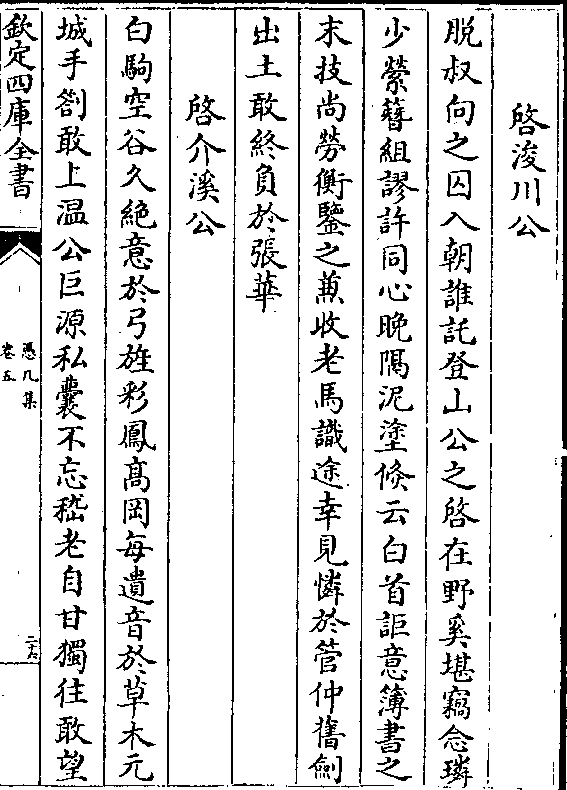 啓浚川公
脱叔向之囚入朝誰託登山公之啓在野奚堪竊念璘
少縈簪組謬許同心晚隔泥塗倐云白首詎意簿書之
末技尚勞衡鑒之蒹收老馬識途幸見憐於管仲舊劍
出土敢終負於張華
啓介溪公
白駒空谷久絶意於弓旌彩鳳髙岡每遺音於草木元
城手劄敢上温公巨源私囊不忘嵇老自甘獨往敢望
欽定四庫全書
憑几集
卷五
二十六